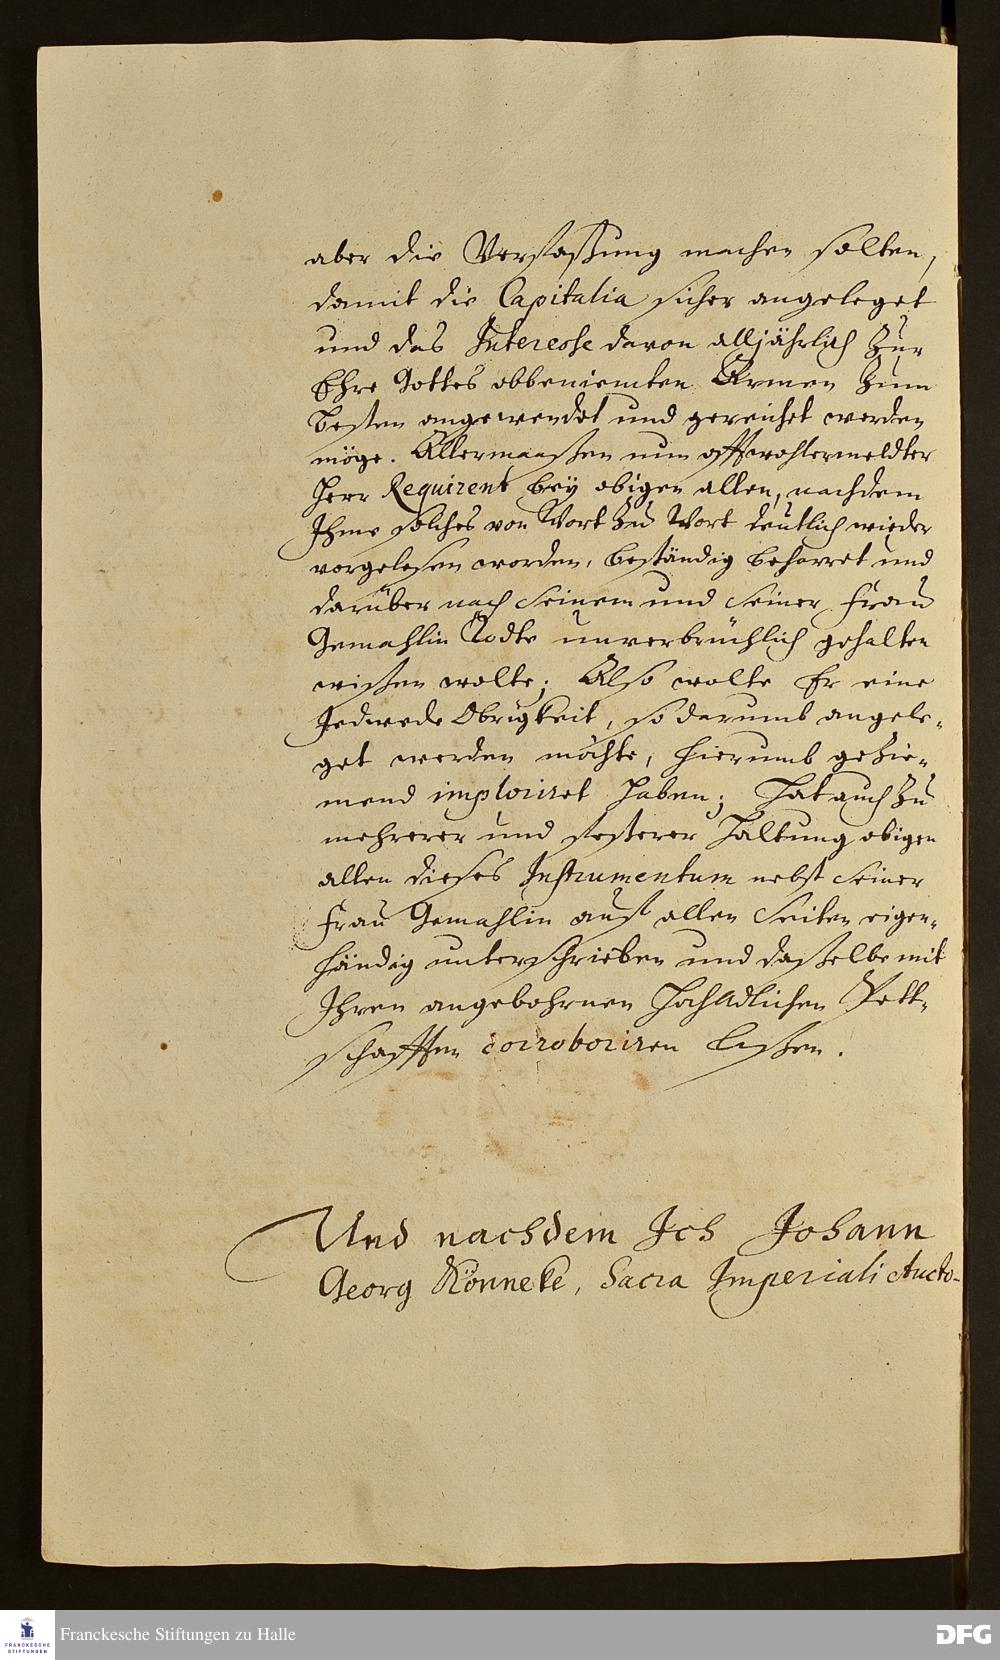 aber die Verfaßung machen solten,
damit die Capitalia sicher angeleget
und das Interesse davon alljährlich zur
Ehre Gottes obbeniemten Armen zum
besten angewendet und gereichet werden
möge. Allermaaßen nun offtwohlermeldter
Herr Requirent bey obigen allen, nachdem
Ihme solches von Wort zu Wort deutlich wieder
vorgelesen worden, beständig beharret und
darüber nach seinem und seiner Frau
Gemahlin Todte unverbrüchlich gehalten
wißen wolte; Also wolte Er eine
Jedwede Obrigkeit, so darumb angele-
get werden möchte, hierumb gezie-
mend imploriret haben; Hat auch zu
mehrerer und festerer Haltung obigen
allen dieses Instrumentum nebst seiner
Frau Gemahlin auf allen Seiten eigen-
händig unterschrieben und daßelbe mit
Ihren angebohrnen HochAdlichen Pett-
schafften corroboriren laßen.
Und nachdem Ich Johann
Georg Könneke, Sacra Imperiali Aucto-
Franckesche Stiftungen zu Halle
FRANCKESCHE
STIFTUNGEN
DFG